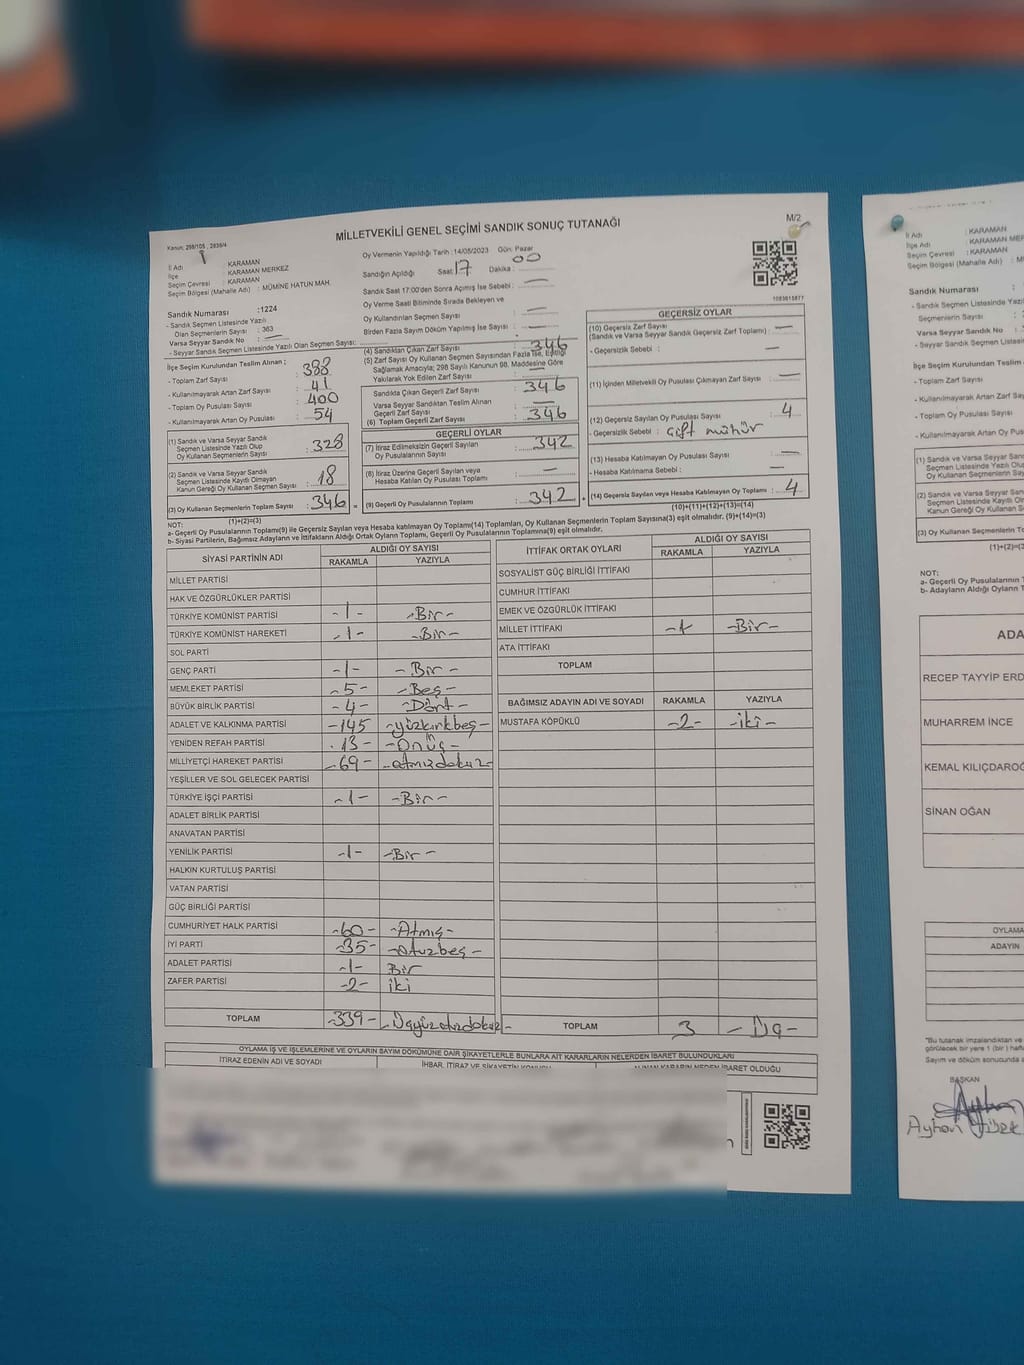 MİLLETVEKİLİ GENEL SEÇİMİ SANDIK SONUÇ TUTANAĞI
M/2
İl Adı : KARAMAN
İlçe : KARAMAN MERKEZ
Seçim Çevresi : KARAMAN
Seçim Bölgesi (Mahalle Adı) : MÜMİNE HATUN MAH.
Oy Vermenin Yapıldığı Tarih : 14/05/2023 Gün: Pazar
Sandığın Açıldığı Saat: 17 Dakika : 00
Sandık Saat 17:00'den Sonra Açımış İse Sebebi : —
Oy Verme Saati Bitiminde Sırada Bekleyen ve
Oy Kullandırılan Seçmen Sayısı : —
Birden Fazla Sayım Döküm Yapılmış İse Sayısı : —
Sandık Numarası :1224
- Sandık Seçmen Listesinde Yazılı
Olan Seçmenlerin Sayısı : 363
Varsa Seyyar Sandık No : —
- Seyyar Sandık Listesinde Yazılı Olan Seçmen Sayısı:
İlçe Seçim Kurulundan Teslim Alınan ;
- Toplam Zarf Sayısı : 388
- Kullanılmayarak Artan Zarf Sayısı : 41
- Toplam Oy Pusulası Sayısı : 400
- Kullanılmayarak Artan Oy Pusulası : 54
(1) Sandık ve Varsa Seyyar Sandık
Seçmen Listesinde Yazılı Olup
Oy Kullanan Seçmenlerin Sayısı : 328
(2) Sandık ve Varsa Seyyar Sandık
Seçmen Listesinde Kaydı Olmayan
Kanun Gereği Oy Kullanan Seçmen Sayısı : 18
(3) Oy Kullanan Seçmenlerin Toplam Sayısı : 346
(1)+(2)=(3)
(4) Sandıktan Çıkan Zarf Sayısı : 346
(5) Zarf Sayısı Oy Kullanan Seçmen Sayısından Fazla İse, Eşitliği
Sağlamak Amacıyla; 298 Sayılı Kanunun 98. Maddesine Göre
Yakılarak Yok Edilen Zarf Sayısı : —
Sandıkta Çıkan Geçerli Zarf Sayısı : 346
Varsa Seyyar Sandıktan Teslim Alınan
Geçerli Zarf Sayısı : —
(6) Toplam Geçerli Zarf Sayısı : 346
GEÇERLİ OYLAR
(7) İtiraz Edilmeksizin Geçerli Sayılan
Oy Pusulalarının Sayısı : 342
(8) İtiraz Üzerine Geçerli Sayılan veya
Hesaba Katılan Oy Pusulaları Toplamı : —
(9) Geçerli Oy Pusulalarının Toplamı : 342
GEÇERSİZ OYLAR
(10) Geçersiz Zarf Sayısı
(Sandık ve Varsa Seyyar Sandık Geçersiz Zarf Toplamı) : —
- Geçersizlik Sebebi : —
(11) İçinden Milletvekili Oy Pusulası Çıkmayan Zarf Sayısı : —
(12) Geçersiz Sayılan Oy Pusulası Sayısı : 4
- Geçersizlik Sebebi : çift mühür
(13) Hesaba Katılmayan Oy Pusulası Sayısı : —
- Hesaba Katılmama Sebebi : —
(14) Geçersiz Sayılan veya Hesaba Katılmayan Oy Toplamı : 4
(10)+(11)+(12)+(13)=(14)
NOT:
a- Geçerli Oy Pusulalarının Toplamı(9) ile Geçersiz Sayılan veya Hesaba katılmayan Oy Toplamı(14) Toplamları, Oy Kullanan Seçmenlerin Toplam Sayısına(3) eşit olmalıdır. (9)+(14)=(3)
b- Siyasi Partilerin, Bağımsız Adayların ve İttifakların Aldığı Ortak Oyların Toplamı, Geçerli Oy Pusulalarının Toplamına(9) eşit olmalıdır.
SİYASİ PARTİNİN ADI ALDIĞI OY SAYISI
RAKAMLA YAZIYLA
MİLLET PARTİSİ
HAK VE ÖZGÜRLÜKLER PARTİSİ
TÜRKİYE KOMÜNİST PARTİSİ -1- -Bir-
TÜRKİYE KOMÜNİST HAREKETİ -1- -Bir-
SOL PARTİ
GENÇ PARTİ -1- -Bir-
MEMLEKET PARTİSİ -5- -Beş-
BÜYÜK BİRLİK PARTİSİ -4- -Dört-
ADALET VE KALKINMA PARTİSİ -145 -yüzkırkbeş-
YENİDEN REFAH PARTİSİ -13- -Onüç-
MİLLİYETÇİ HAREKET PARTİSİ -69- -atmışdokuz-
YEŞİLLER VE SOL GELECEK PARTİSİ
TÜRKİYE İŞÇİ PARTİSİ -1- -Bir-
ADALET BİRLİK PARTİSİ
ANAVATAN PARTİSİ
YENİLİK PARTİSİ -1- -Bir-
HALKIN KURTULUŞ PARTİSİ
VATAN PARTİSİ
GÜÇ BİRLİĞİ PARTİSİ
CUMHURİYET HALK PARTİSİ -60- -Atmış-
İYİ PARTİ -35- -otuzbeş-
ADALET PARTİSİ -1- Bir
ZAFER PARTİSİ -2- iki
TOPLAM -339- -Üçyüzotuzdokuz-
İTTİFAK ORTAK OYLARI ALDIĞI OY SAYISI
RAKAMLA YAZIYLA
SOSYALİST GÜÇ BİRLİĞİ İTTİFAKI
CUMHUR İTTİFAKI
EMEK VE ÖZGÜRLÜK İTTİFAKI
MİLLET İTTİFAKI -1- -Bir-
ATA İTTİFAKI
TOPLAM
BAĞIMSIZ ADAYIN ADI VE SOYADI RAKAMLA YAZIYLA
MUSTAFA KÖPÜKLÜ -2- -iki-
TOPLAM 3 -Üç-
OYLAMA İŞ VE İŞLEMLERİNE VE OYLARIN SAYIM DÖKÜMÜNE DAİR ŞİKAYETLERLE BUNLARA AİT KARARLARIN NELERDEN İBARET BULUNDUKLARI
İTİRAZ EDENİN ADI VE SOYADI
İHBAR, İTİRAZ VE ŞİKAYETİN KONUSU
İl Adı : KARAMAN
İlçe Adı : KARAMAN MER
Seçim Çevresi : KARAMAN
Seçim Bölgesi (Mahalle Adı)
Sandık Numarası :
- Sandık Seçmen Listesinde Yazılı
Seçmenlerin Sayısı
Varsa Seyyar Sandık No
- Seyyar Sandık Listesinde
İlçe Seçim Kurulundan Teslim
- Toplam Zarf Sayısı
- Kullanılmayarak Artan
- Toplam Oy Pusulası Sayısı
- Kullanılmayarak Artan Oy
(1)+(2)=
NOT:
a- Geçerli Oy Pusulalarının
b- Adayların Aldığı Oyların
ADA
RECEP TAYYİP ERD
MUHARREM İNCE
KEMAL KILIÇDAROĞ
SİNAN OĞAN
OYLAMA
ADAYIN
BAŞKAN
Ayhan